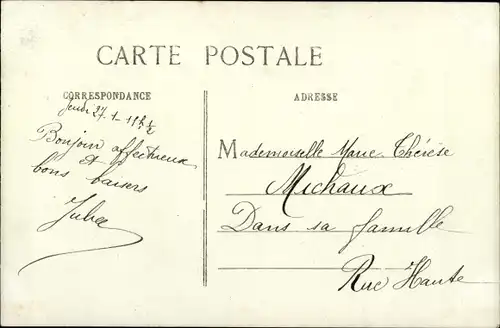 CARTE POSTALE
CORRESPONDANCE
Jeudi 27-1-19
Bonjour affectueux
et
bons baisers
ADRESSE
Mademoiselle Marie-Thérèse
Michaux
Dans sa famille
Rue Haute